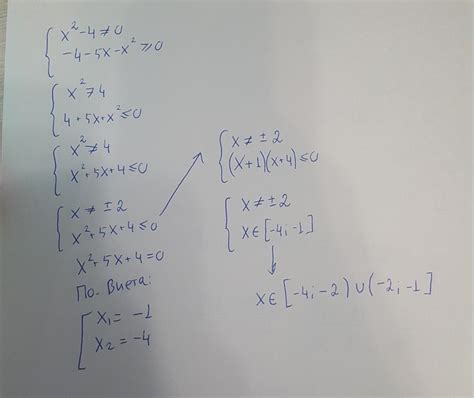 x² - 4 ≠ 0
-4 - 5x - x² ≥ 0
x² ≠ 4
4 + 5x + x² ≤ 0
x² ≠ 4
x² + 5x + 4 ≤ 0
x ≠ ± 2
x² + 5x + 4 ≤ 0
x² + 5x + 4 = 0
По. Виета:
x₁ = -1
x₂ = -4
x ≠ ± 2
(x+1)(x+4) ≤ 0
x ≠ ± 2
x ∈ [-4; -1]
x ∈ [-4; -2) ∪ (-2; -1]